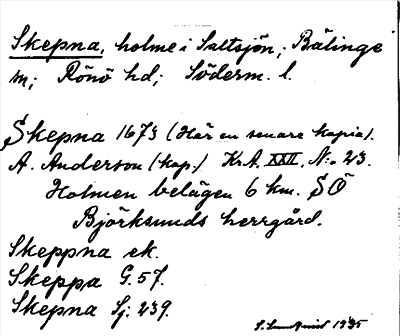 Skepna, holme i Saltsjön, Bälinge
sn; Rönö hd; Söderm. l.
Skepna 1673 (Här en senare kopia).
A. Anderson (kop.) Kr.A. XXII, N:o 23.
Holmen belägen 6 km. SÖ
Björksunds herrgård.
Skeppna ek.
Skeppa G. 57.
Skepna Sj: 239.
1935